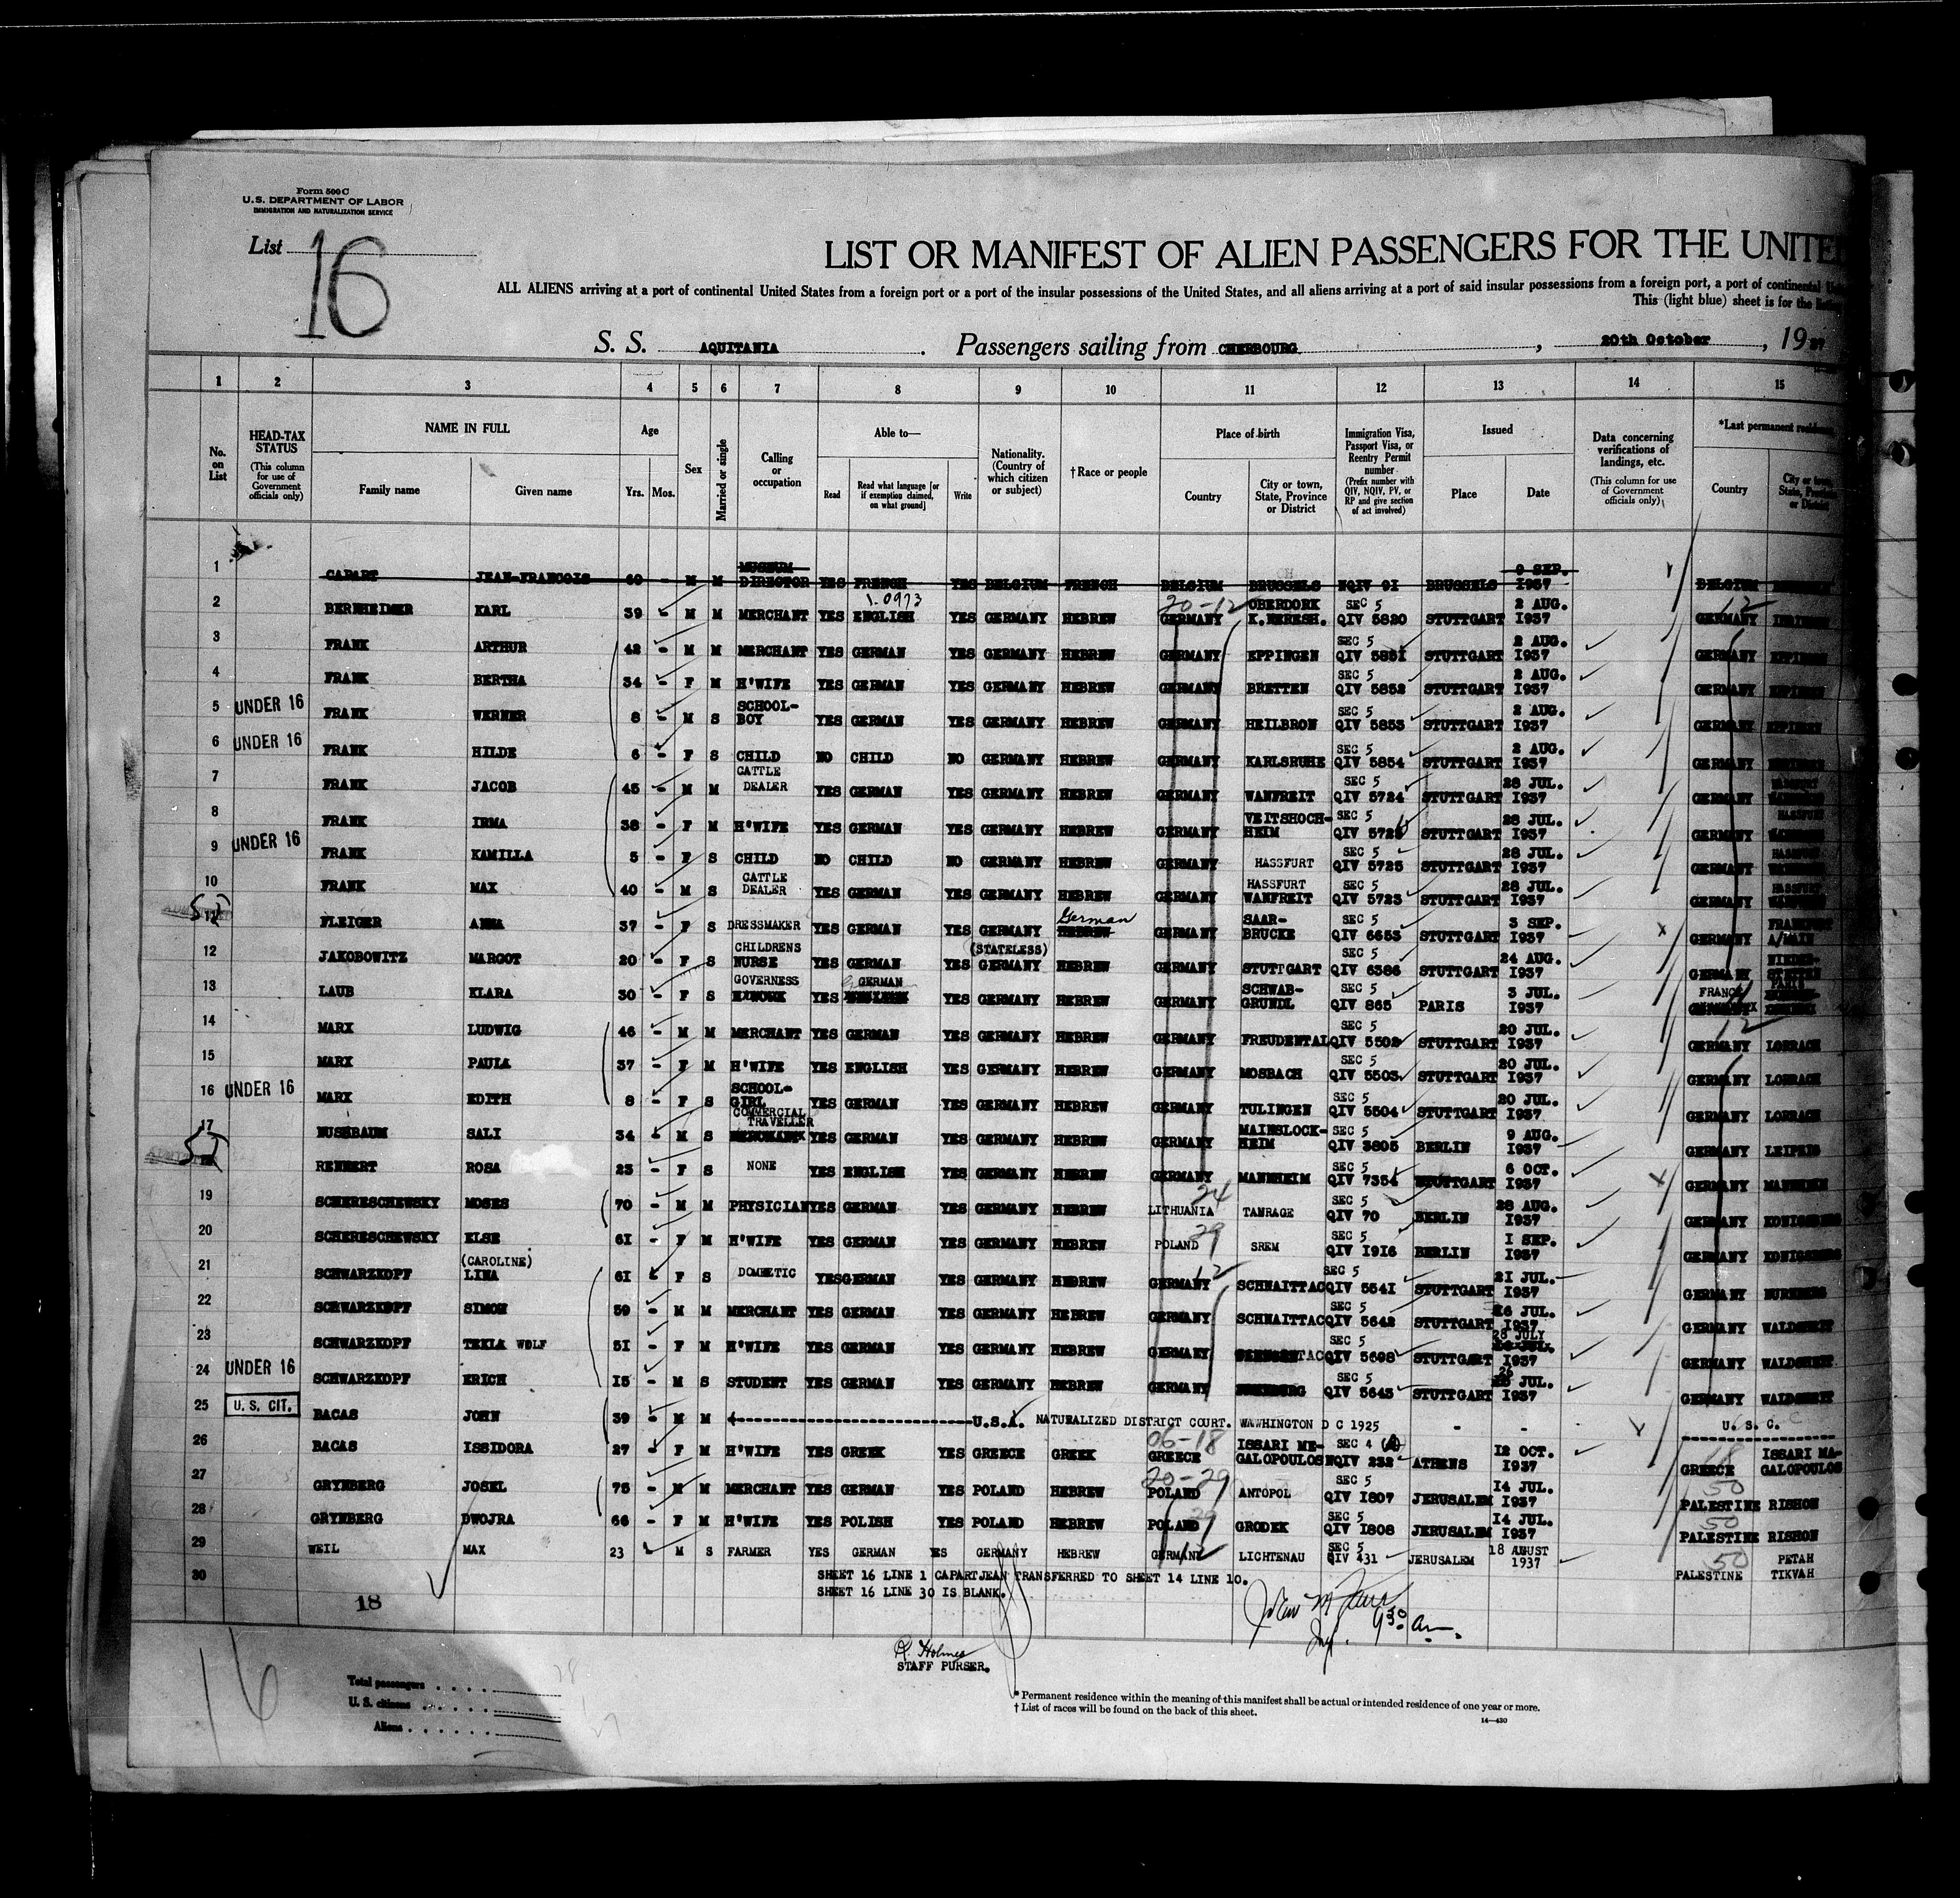 Form 500 C
U.S. DEPARTMENT OF LABOR
IMMIGRATION AND NATURALIZATION SERVICE
List 16
LIST OR MANIFEST OF ALIEN PASSENGERS FOR THE UNITE
ALL ALIENS arriving at a port of continental United States from a foreign port or a port of the insular possessions of the United States, and all aliens arriving at a port of said insular possessions from a foreign port, a port of continental
This (light blue) sheet is for the listing
S. S. AQUITANIA. Passengers sailing from CHERBOURG, 20th October, 1937
1 2 3 4 5 6 7 8 9 10 11 12 13 14 15
No. on List
HEAD-TAX STATUS (This column for use of Government officials only)
NAME IN FULL Family name Given name
Age Yrs. Mos.
Sex
Married or single
Calling or occupation
Able to— Read Read what language [or if exemption claimed, on what ground] Write
Nationality. (Country of which citizen or subject)
†Race or people
Place of birth Country City or town, State, Province or District
Immigration Visa, Passport Visa, or Reentry Permit number (Prefix number with QIV, NQIV, PV, or RP and give section of act involved)
Issued Place Date
Data concerning verifications of landings, etc. (This column for use of Government officials only)
*Last permanent residence Country City or town, State, Province or District
1 CAPART JEAN-FRANCOIS 60 - M M MUSEUM DIRECTOR YES FRENCH YES BELGIUM FRENCH BELGIUM BRUSSELS NQIV 91 BRUSSELS 9 SEP. 1937 BELGIUM
2 BERNHEIMER KARL 39 - M M MERCHANT YES ENGLISH 1.0973 YES GERMANY HEBREW 20-12 GERMANY OBERDORK K. NERESH. SEC 5 QIV 5820 STUTTGART 2 AUG. 1937 12 GERMANY
3 FRANK ARTHUR 42 - M M MERCHANT YES GERMAN YES GERMANY HEBREW GERMANY EPPINGEN SEC 5 QIV 5851 STUTTGART 2 AUG. 1937 GERMANY EPPINGEN
4 FRANK BERTHA 34 - F M H'WIFE YES GERMAN YES GERMANY HEBREW GERMANY BRETTEN SEC 5 QIV 5852 STUTTGART 2 AUG. 1937 GERMANY EPPINGEN
5 UNDER 16 FRANK WERNER 8 - M S SCHOOL-BOY YES GERMAN YES GERMANY HEBREW GERMANY HEILBRON SEC 5 QIV 5853 STUTTGART 2 AUG. 1937 GERMANY EPPINGEN
6 UNDER 16 FRANK HILDE 6 - F S CHILD NO CHILD NO GERMANY HEBREW GERMANY KARLSRUHE SEC 5 QIV 5854 STUTTGART 2 AUG. 1937 GERMANY
7 FRANK JACOB 45 - M M CATTLE DEALER YES GERMAN YES GERMANY HEBREW GERMANY WANFREIT SEC 5 QIV 5724 STUTTGART 28 JUL. 1937 GERMANY
8 FRANK IRMA 38 - F M H'WIFE YES GERMAN YES GERMANY HEBREW GERMANY VEITSHOCH-HEIM SEC 5 QIV 572 STUTTGART 28 JUL. 1937 GERMANY HASSFURT
9 UNDER 16 FRANK KAMILLA 5 - F S CHILD NO CHILD NO GERMANY HEBREW GERMANY HASSFURT SEC 5 QIV 5725 STUTTGART 28 JUL. 1937 GERMANY HASSFURT
10 FRANK MAX 40 - M S CATTLE DEALER YES GERMAN YES GERMANY HEBREW GERMANY HASSFURT WANFREIT SEC 5 QIV 5723 STUTTGART 28 JUL. 1937 GERMANY HASSFURT
FLEIGER ANNA 37 - F S DRESSMAKER YES GERMAN YES GERMANY German HEBREW GERMANY SAAR-BRUCKE SEC 5 QIV 6653 STUTTGART 3 SEP. 1937 GERMANY FRANKFURT A/MAIN
12 JAKOBOWITZ MARGOT 20 - F S CHILDRENS NURSE YES GERMAN YES (STATELESS) GERMANY HEBREW GERMANY STUTTGART SEC 5 QIV 6386 STUTTGART 24 AUG. 1937 GERMANY
13 LAUB KLARA 30 - F S GOVERNESS YES GERMAN YES GERMANY HEBREW GERMANY SCHWAB-GRUNDL SEC 5 QIV 865 PARIS 3 JUL. 1937 FRANCE PARIS
14 MARX LUDWIG 46 - M M MERCHANT YES GERMAN YES GERMANY HEBREW GERMANY FREUDENTAL SEC 5 QIV 5502 STUTTGART 20 JUL. 1937 12 GERMANY LORRACH
15 MARX PAULA 37 - F M H'WIFE YES ENGLISH YES GERMANY HEBREW GERMANY MOSBACH SEC 5 QIV 5503 STUTTGART 20 JUL. 1937 GERMANY LORRACH
16 UNDER 16 MARX EDITH 8 - F S SCHOOL-GIRL YES GERMAN YES GERMANY HEBREW GERMANY TULINGEN SEC 5 QIV 5504 STUTTGART 20 JUL. 1937 GERMANY LORRACH
17 NUSSBAUM SALI 34 - M S COMMERCIAL TRAVELLER YES GERMAN YES GERMANY HEBREW GERMANY MAINSLOCK-HEIM SEC 5 QIV 3805 BERLIN 9 AUG. 1937 GERMANY LEIPZIG
RENNERT ROSA 23 - F S NONE YES ENGLISH YES GERMANY HEBREW GERMANY MANNHEIM SEC 5 QIV 7354 STUTTGART 6 OCT. 1937 GERMANY MANNHEIM
19 SCHERESCHEWSKY MOSES 70 - M M PHYSICIAN YES GERMAN YES GERMANY HEBREW 24 LITHUANIA TAMRAGE SEC 5 QIV 70 BERLIN 28 AUG. 1937 GERMANY KONIGSBERG
20 SCHERESCHEWSKY ELSE 61 - F M H'WIFE YES GERMAN YES GERMANY HEBREW 29 POLAND SREM SEC 5 QIV 1916 BERLIN 1 SEP. 1937 GERMANY KONIGSBERG
21 SCHWARZKOPF (CAROLINE) LINA 61 - F S DOMETIC YES GERMAN YES GERMANY HEBREW 12 GERMANY SCHNAITTAC SEC 5 QIV 5541 STUTTGART 21 JUL. 1937 GERMANY NURNBERG
22 SCHWARZKOPF SIMON 59 - M M MERCHANT YES GERMAN YES GERMANY HEBREW GERMANY SCHNAITTAC SEC 5 QIV 5642 STUTTGART 26 JUL. 1937 GERMANY
23 SCHWARZKOPF TEKLA WOLF 51 - F M H'WIFE YES GERMAN YES GERMANY HEBREW GERMANY SEC 5 QIV 5698 STUTTGART 28 JULY 1937 GERMANY
24 UNDER 16 SCHWARZKOPF ERICH 15 - M S STUDENT YES GERMAN YES GERMANY HEBREW GERMANY SEC 5 QIV 5643 STUTTGART 26 JUL. 1937 GERMANY
25 U. S. CIT. BACAS JOHN 39 - M M U.S.A. NATURALIZED DISTRICT COURT. WAWHINGTON D C 1925 - - U. S. C.
26 BACAS ISSIDORA 27 - F M H'WIFE YES GREEK YES GREECE GREEK 06-18 GREECE ISSARI ME-GALOPOULOS SEC 4 (A) NQIV 232 ATHENS 12 OCT. 1937 GREECE ISSARI MA-GALOPOULOS
27 GRYNBERG JOSEL 75 - M M MERCHANT YES GERMAN YES POLAND HEBREW 20-29 POLAND ANTOPOL SEC 5 QIV 1807 JERUSALEM 14 JUL. 1937 50 PALESTINE RISHON
28 GRYNBERG DWOJRA 66 - F M H'WIFE YES POLISH YES POLAND HEBREW POLAND GRODEK SEC 5 QIV 1808 JERUSALEM 14 JUL. 1937 50 PALESTINE RISHON
29 WEIL MAX 23 M S FARMER YES GERMAN YES GERMANY HEBREW GERMANY 12 LICHTENAU SEC 5 QIV 431 JERUSALEM 18 AUGUST 1937 50 PALESTINE PETAH TIKVAH
30 SHEET 16 LINE 1 CAPART JEAN TRANSFERRED TO SHEET 14 LINE 10.
SHEET 16 LINE 30 IS BLANK.
18
9 30 am.
R. Holmes
STAFF PURSER.
16
Total passengers
U. S. citizens
Aliens
* Permanent residence within the meaning of this manifest shall be actual or intended residence of one year or more.
† List of races will be found on the back of this sheet.
14—430